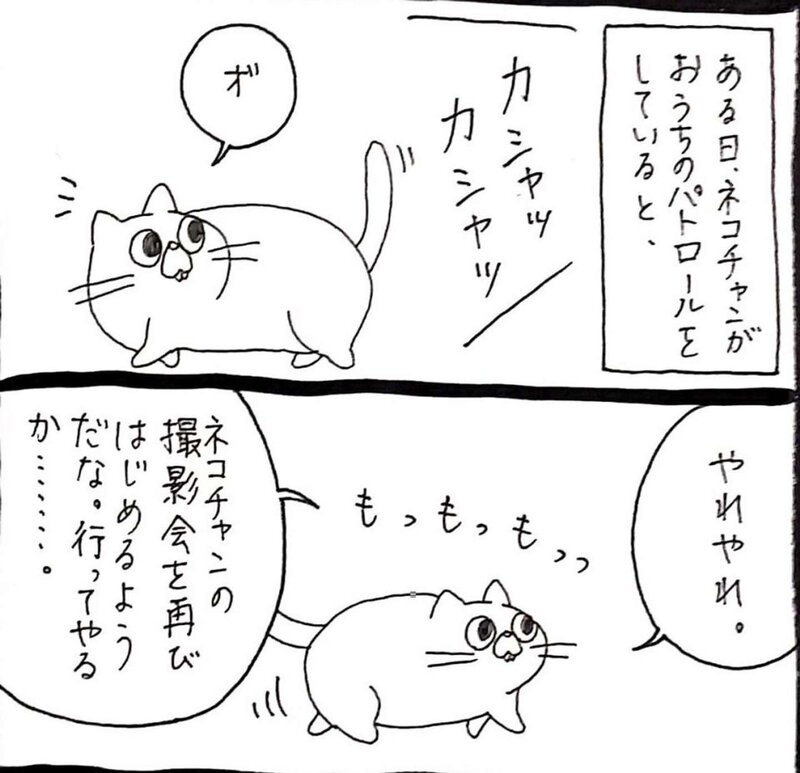 ある日、ネコチャンが
おうちのパトロールを
していると、
カシャッ
カシャッ
オ゛
やれやれ。
もっもっもっっ
ネコチャンの
撮影会を再び
はじめるよう
だな。行ってやる
か……。